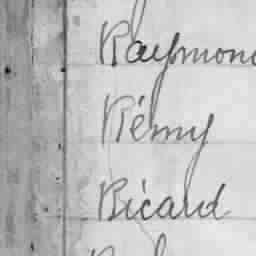 Raymond
Rémy
Ricard